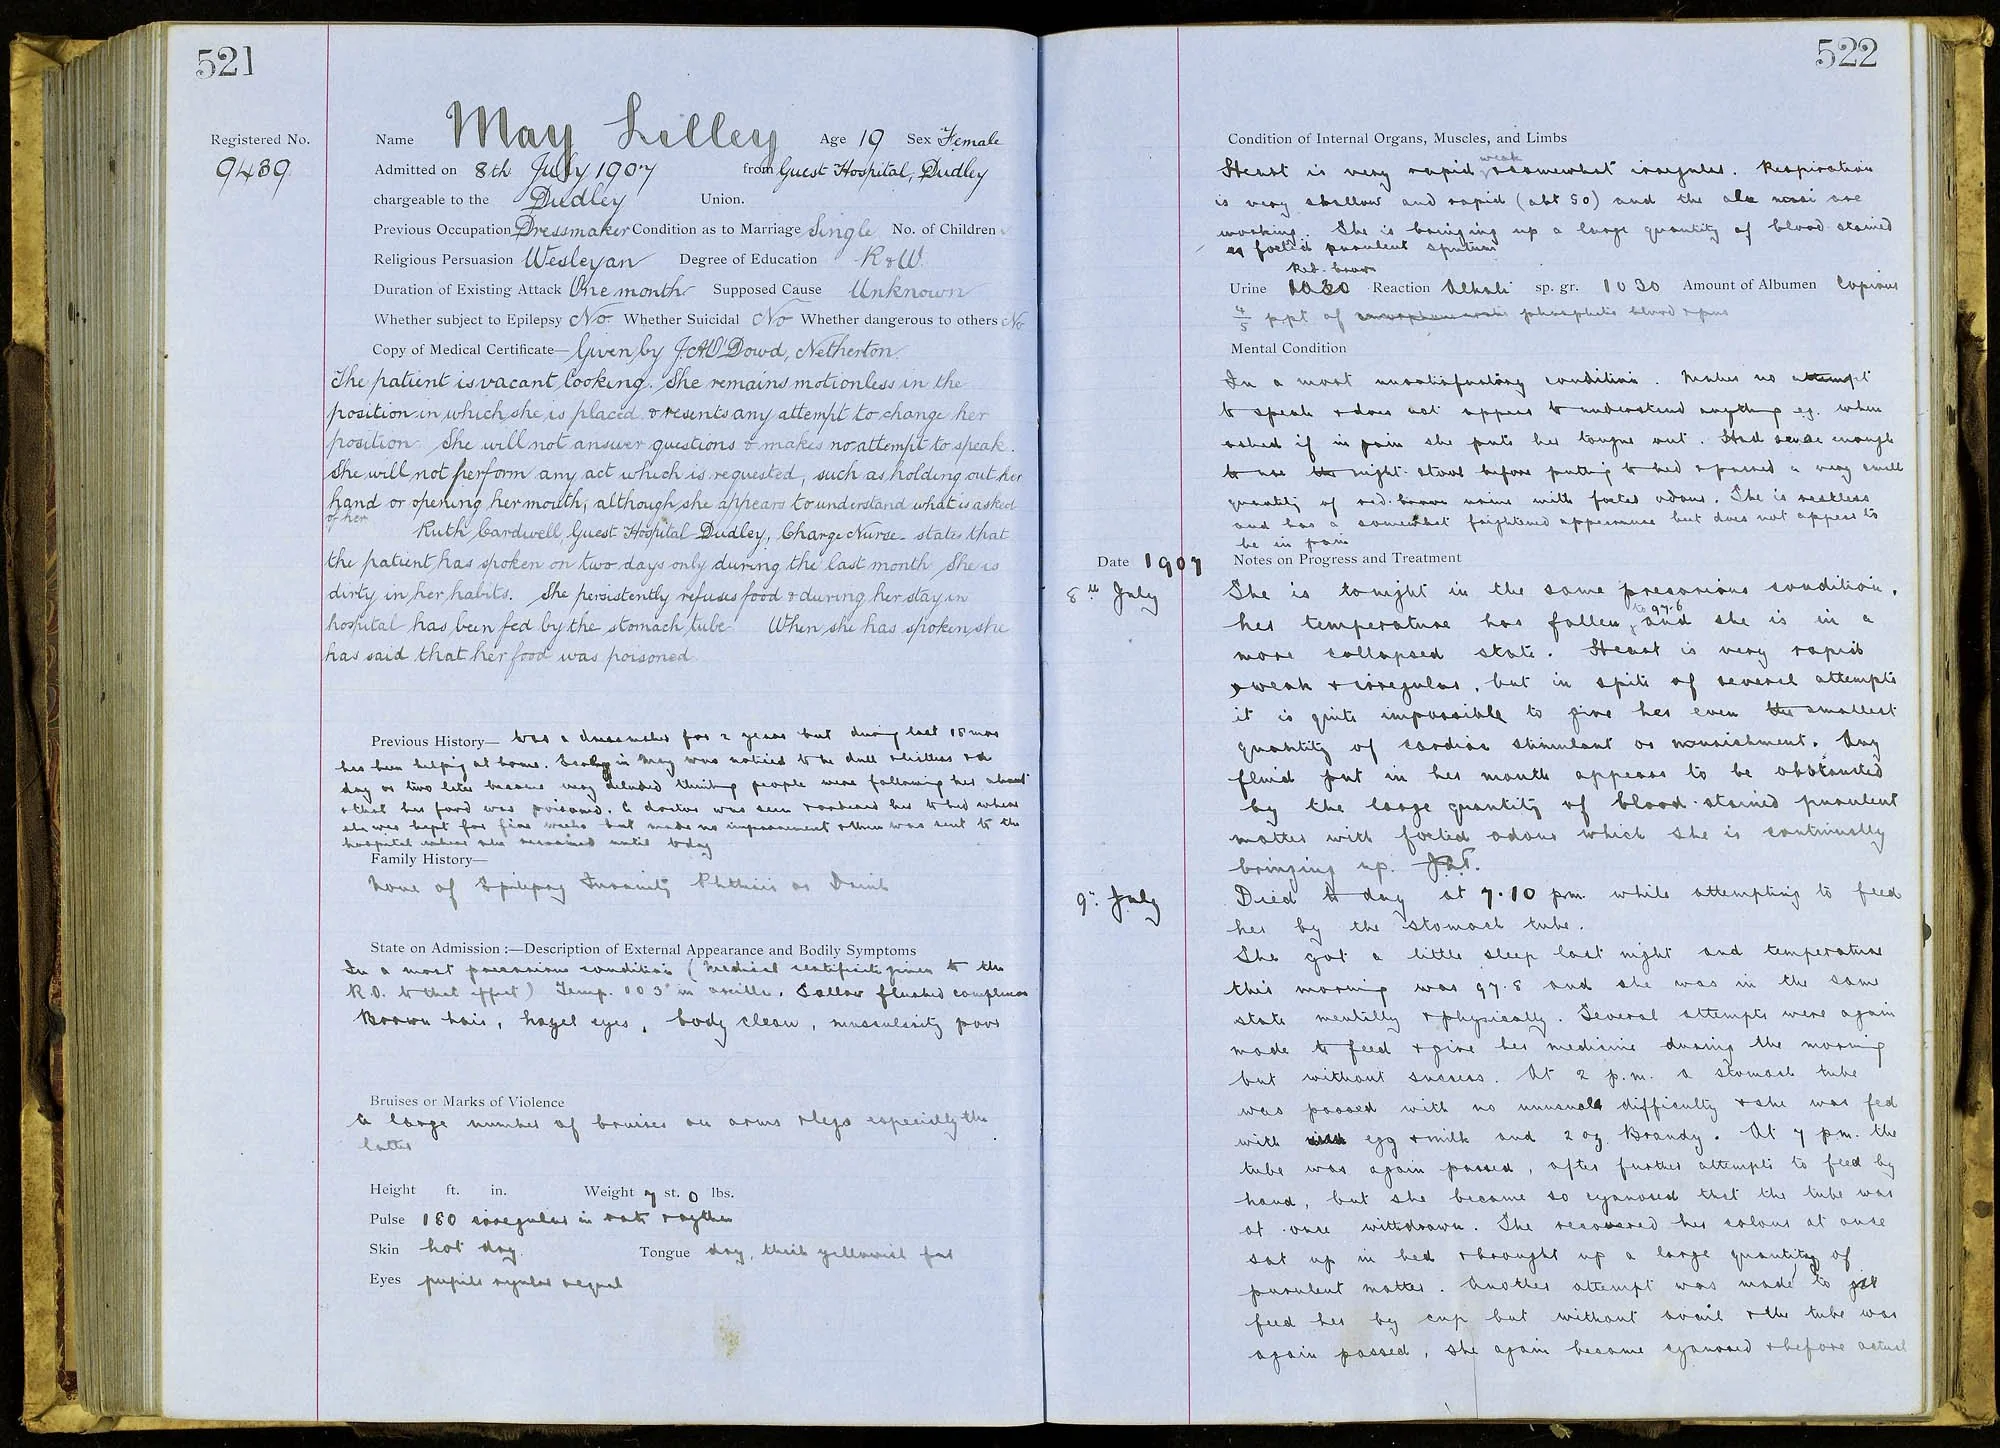 521
Registered No.
9439
Name May Lilley Age 19 Sex Female
Admitted on 8th July 1907 from Guest Hospital, Dudley
chargeable to the Dudley Union.
Previous Occupation Dressmaker Condition as to Marriage Single No. of Children
Religious Persuasion Wesleyan Degree of Education R & W.
Duration of Existing Attack One month Supposed Cause Unknown
Whether subject to Epilepsy No. Whether Suicidal No Whether dangerous to others No
Copy of Medical Certificate— Given by J A O'Dowd, Netherton.
The patient is vacant looking. She remains motionless in the
position in which she is placed & resents any attempt to change her
position. She will not answer questions & makes no attempt to speak.
She will not perform any act which is requested, such as holding out her
hand or opening her mouth, although she appears to understand what is asked
of her
Ruth Cardwell, Guest Hospital Dudley, Charge Nurse - states that
the patient has spoken on two days only during the last month She is
dirty in her habits. She persistently refuses food & during her stay in
hospital has been fed by the stomach tube. When she has spoken she
has said that her food was poisoned
Previous History— Was a dressmaker for 2 years but during last 18 mos
has been helping at home. Early in May was noticed to be dull & listless & a
day or two later became very deluded thinking people were following her about
& that her food was poisoned. A doctor was seen & ordered her to bed where
she was kept for five weeks but made no improvement & then was sent to the
hospital where she remained until today
Family History—
None of Epilepsy Insanity Phthisis or Drink
State on Admission :—Description of External Appearance and Bodily Symptoms
In a most precarious condition (Medical certificate given to the
R.O. to that effect) Temp. 103° in axilla. Sallow flushed complexion
Brown hair, hazel eyes, body clean, muscularity poor
Bruises or Marks of Violence
A large number of bruises on arms & legs especially the
latter
Height ft. in. Weight 7 st. 0 lbs.
Pulse 180 irregular in rate & rythm
Skin hot dry. Tongue dry, thick yellowish fur
Eyes pupils regular & equal
522
Condition of Internal Organs, Muscles, and Limbs
Heart is very rapid weak & somewhat irregular. Respiration
is very shallow and rapid (abt 50) and the alae nasi are
working. She is bringing up a large quantity of blood stained
foetid purulent sputum
Red. brown
Urine 1030 Reaction Alkali sp. gr. 1030 Amount of Albumen Copious
4/5 ppt of phosphates blood & pus
Mental Condition
In a most unsatisfactory condition. Makes no attempt
to speak & does not appear to understand anything eg. when
asked if in pain she puts her tongue out. Had sense enough
to use the night stool before putting to bed & passed a very small
quantity of red-brown urine with foetid odour. She is restless
and has a somewhat frightened appearance but does not appear to
be in pain
Date 1907 Notes on Progress and Treatment
8th July She is tonight in the same precarious condition.
her temperature has fallen to 97.6 and she is in a
more collapsed state. Heart is very rapid
weak & irregular, but in spite of several attempts
it is quite impossible to give her even the smallest
quantity of cardiac stimulant or nourishment. Any
fluid put in her mouth appears to be obstructed
by the large quantity of blood-stained purulent
matter with foetid odour which she is continually
bringing up.
9th July Died to day at 7.10 pm while attempting to feed
her by the stomach tube.
She got a little sleep last night and temperature
this morning was 97.8 and she was in the same
state mentally & physically. Several attempts were again
made to feed & give her medicine during the morning
but without success. At 2 p.m. a stomach tube
was passed with no unusual difficulty & she was fed
with egg & milk and 2 oz Brandy. At 7 p.m. the
tube was again passed, after further attempts to feed by
hand, but she became so cyanosed that the tube was
at once withdrawn. She recovered her colour at once
sat up in bed & brought up a large quantity of
purulent matter. Another attempt was made to
feed her by cup but without avail & the tube was
again passed, she again became cyanosed & before actual